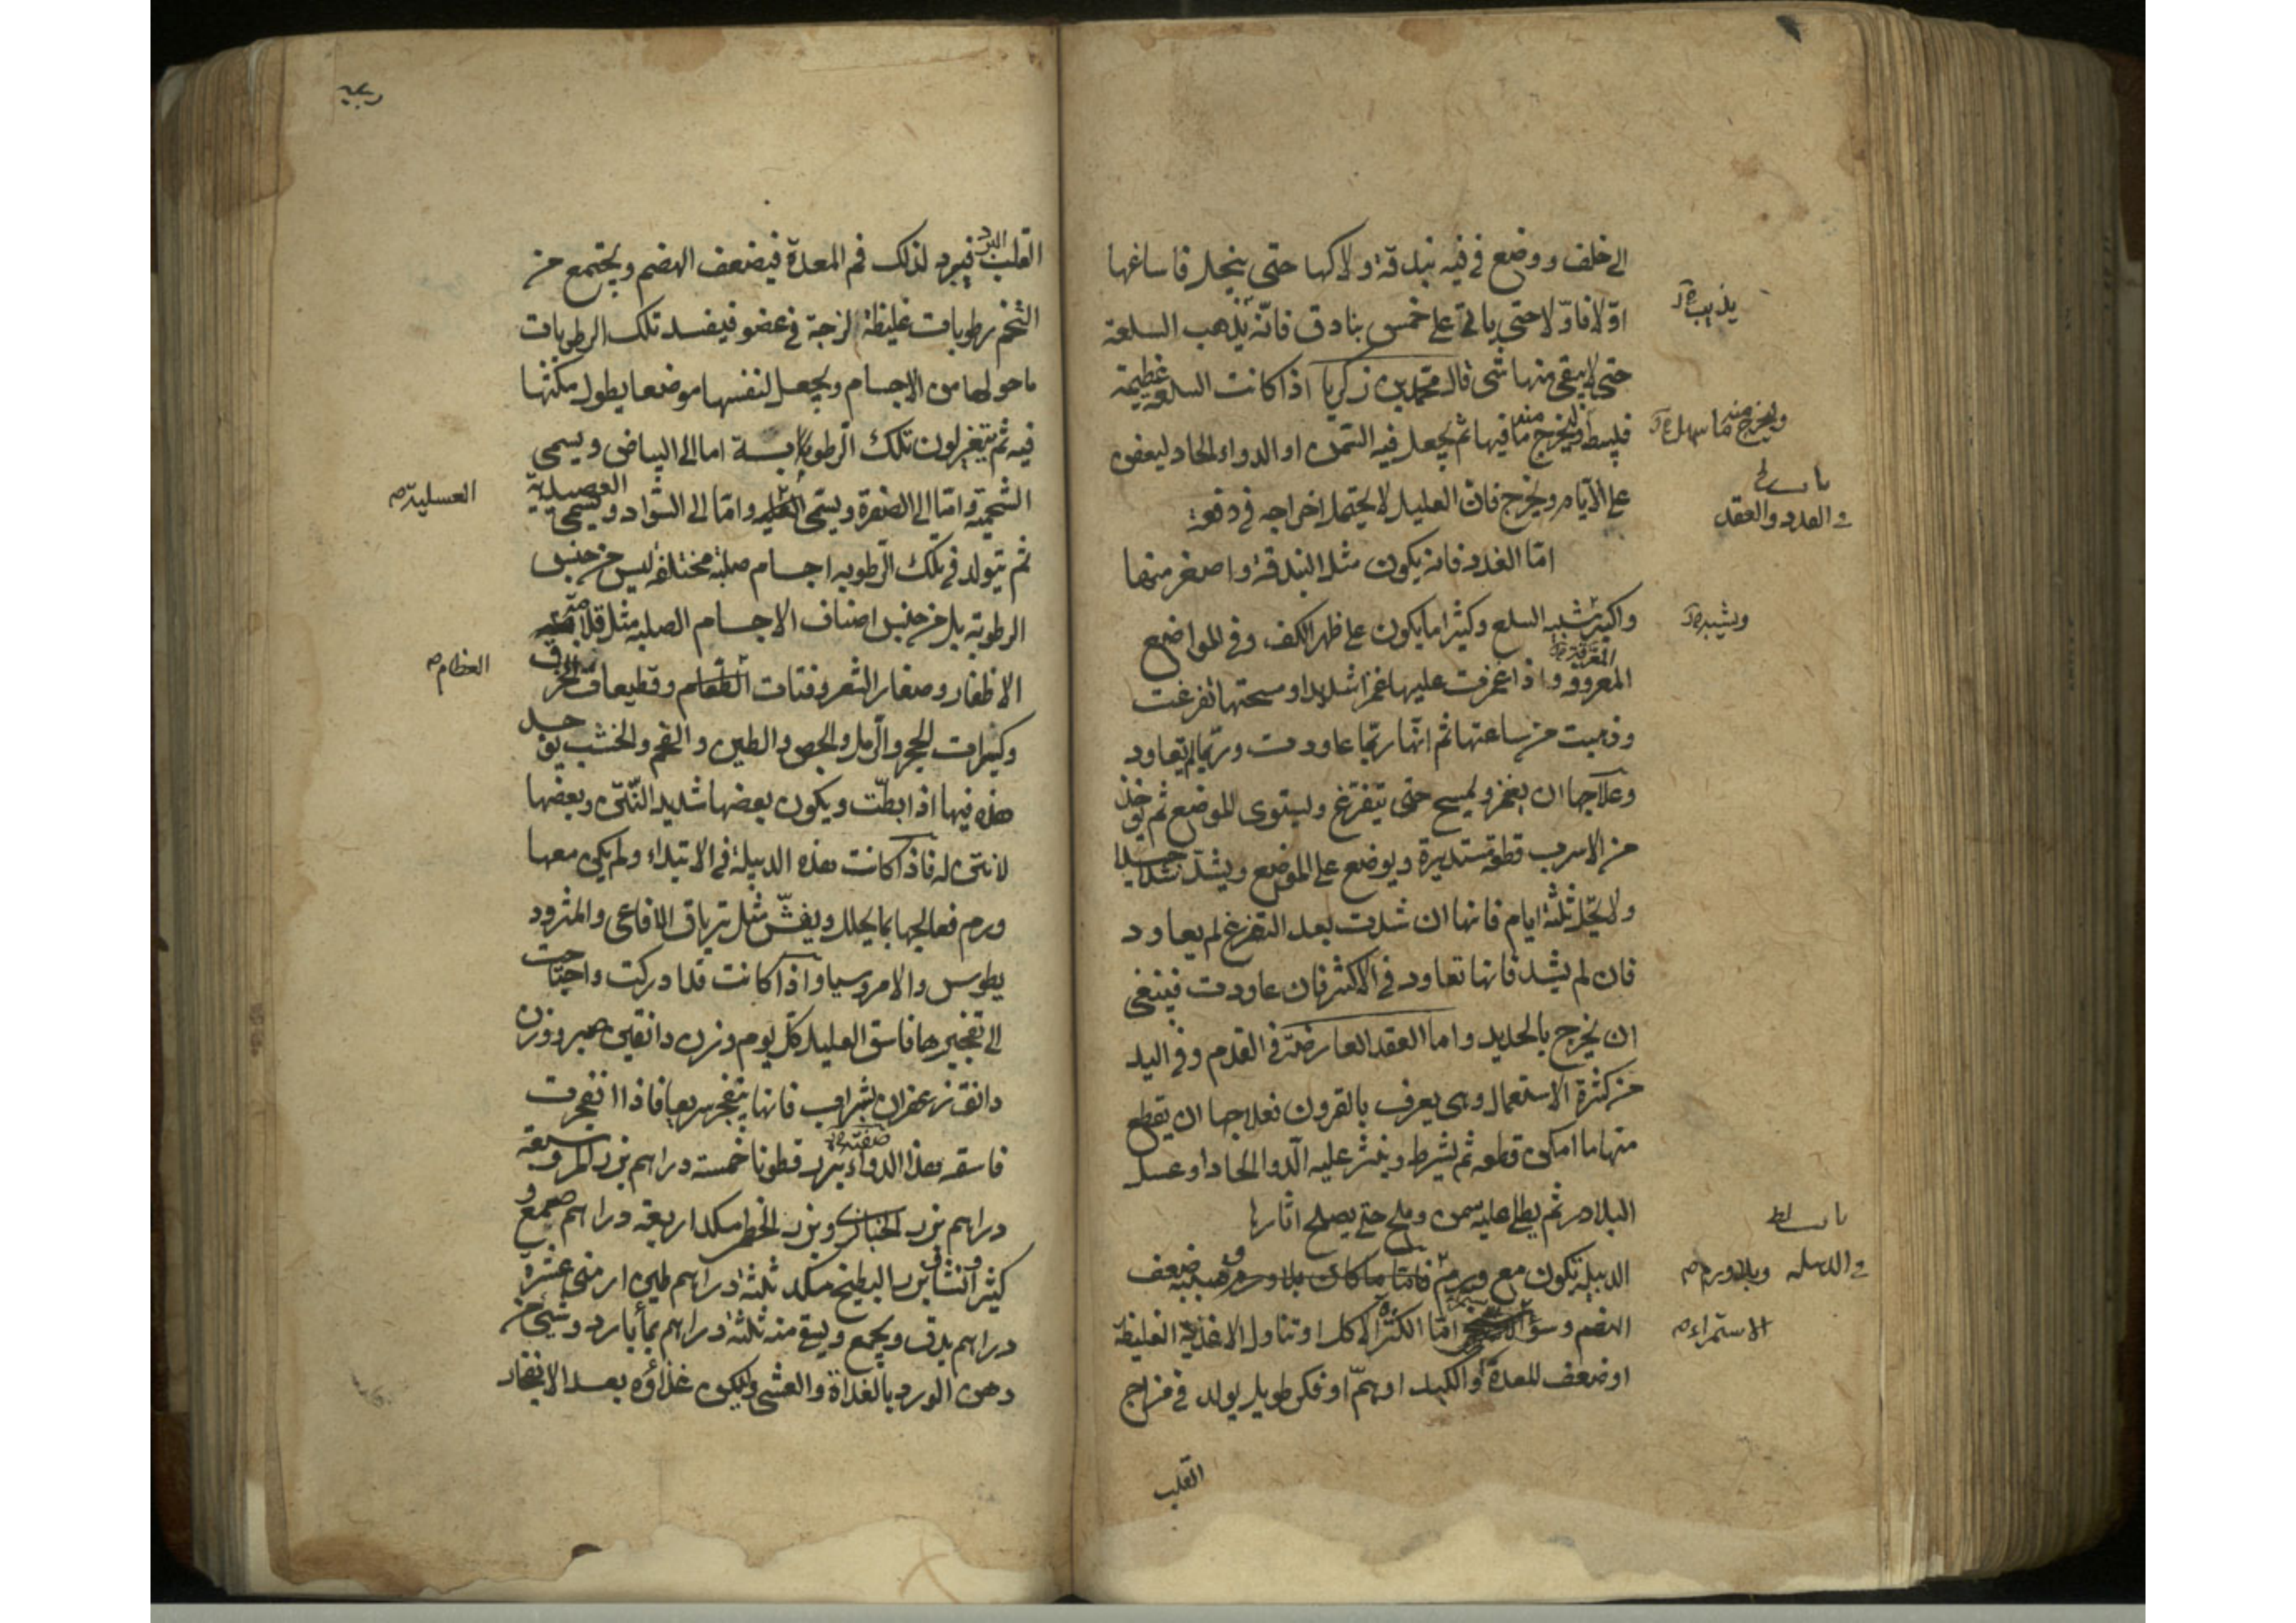 الى خلف ووضع في فيه بندقة ولاكها حتى ينحل فاساغها
اوّلا فاوّلا حتى ياتي على خمس بنادق فانّه يذهب السلعة
يذيب
حتى لا يبقى منها شئ قال محمد بن زكريا اذا كانت السلعة عظيمة
فليبط وليخرج منه ما فيها ثم يجعل فيه السمن او الدواء الحاد ليعفن
ويخرج منه ما سهل
على الايام ويخرج فان العليل لا يحتمل اخراجه في دفعة
في الغدد والعقد
امّا الغدد فانه يكون مثل البندقة واصغر منها
واكبر يشبه السلع وكثيرا ما يكون على ظهر الكف وفي المواضع
ويشبه
المعروقه واذا غمزت عليها غمزا شديدا ومسحتها تفرغت
وذهبت من ساعتها ثم انّها ربّما عاودت وربّما لم تعاود
وعلاجها ان يغمز ويمسح حتى يتفرّغ ويستوى الموضع ثم يؤخذ
من الاسرب قطعة مستديرة ويوضع على الموضع ويشدّ شدا جيدا
ولا يحّل ثلثة ايام فانها ان شدت بعد التفرغ لم يعاود
فان لم يشد فانها تعاود في الاكثر فان عاودت فينبغي
ان يخرج بالحديد واما العقد العارضة في القدم وفي اليد
من كثرة الاستعمال وهى يعرف بالقرون فعلاجها ان يقطع
منها ما امكن قطعه ثم يشرط وينثر عليه الدوا الحاد او عسل
البلادر ثم يطلى عليه سمن وملح حتى يصلح اثارها
الدبيلة تكون مع ورم فامّا ما كان بلا ورم فسببه ضعف
في الدبيله
وبلاورم
الهضم وسوء امّا الكثرة الاكل او تناول الاغذية الغليظة
الاستمراء
او ضعف المعدة او الكبد او همّ او فكر طويل يولد في مزاج
القلب
القلب البرد فيبرد لذلك فم المعدة فيضعف الهضم ويجتمع من
التخم رطوبات غليظة لزجة في عضو فيفسد تلك الرطوبات
ما حولها من الاجسام ويجعل لنفسها موضعا يطول مكثها
فيه ثم يتغير لون تلك الرطوبة اما الى البياض ويسمى
الشحمية وامّا الى الصفرة ويسمّى وامّا الى السّواد ويسمى العصيدية
العسلية
ثم يتولد في تلك الرطوبه اجسام صلبة مختلفة ليس من جنس
الرطوبة بل من جنس اصناف الاجسام الصلبة مثل قلامة
الاظفار وصغار الشعر وفتات الطعام وقطيعات الخزف
العظام
وكسرات الحجر والرمل والجص والطين والفحم والخشب يوجد
هذه فيها اذا بطّت ويكون بعضها شديد النّتن وبعضها
لا نتن له فاذا كانت هذه الدبيلة في الابتداء ولم يكن معها
ورم فعالجها بما يحلل ويفشّ مثل ترياق الافاعى والمثرود
يطوس والامروسيا واذا كانت قد ادركت واحتاجت
الى تفجيرها فاسق العليل كل يوم وزن دانقين صبر ووزن
دانق زعفران بشراب فانها يتفجر سريعا فاذا انفجرت
فاسقه هذا الدواء صفته بزر قطونا خمسة دراهم بزر المرو سبعة
دراهم بزر الخبازى وبزر الخطمى مكد اربعة دراهم صمغ و
كثيرا ونشا وبزر البطيخ مكد ثلثة دراهم طين ارمنى عشرة
دراهم يدق ويجمع ويسقى منه ثلثة دراهم بماء بارد وشئ من
دهن الورد بالغداة والعشى وليكن غذاؤه بعد الانفجار